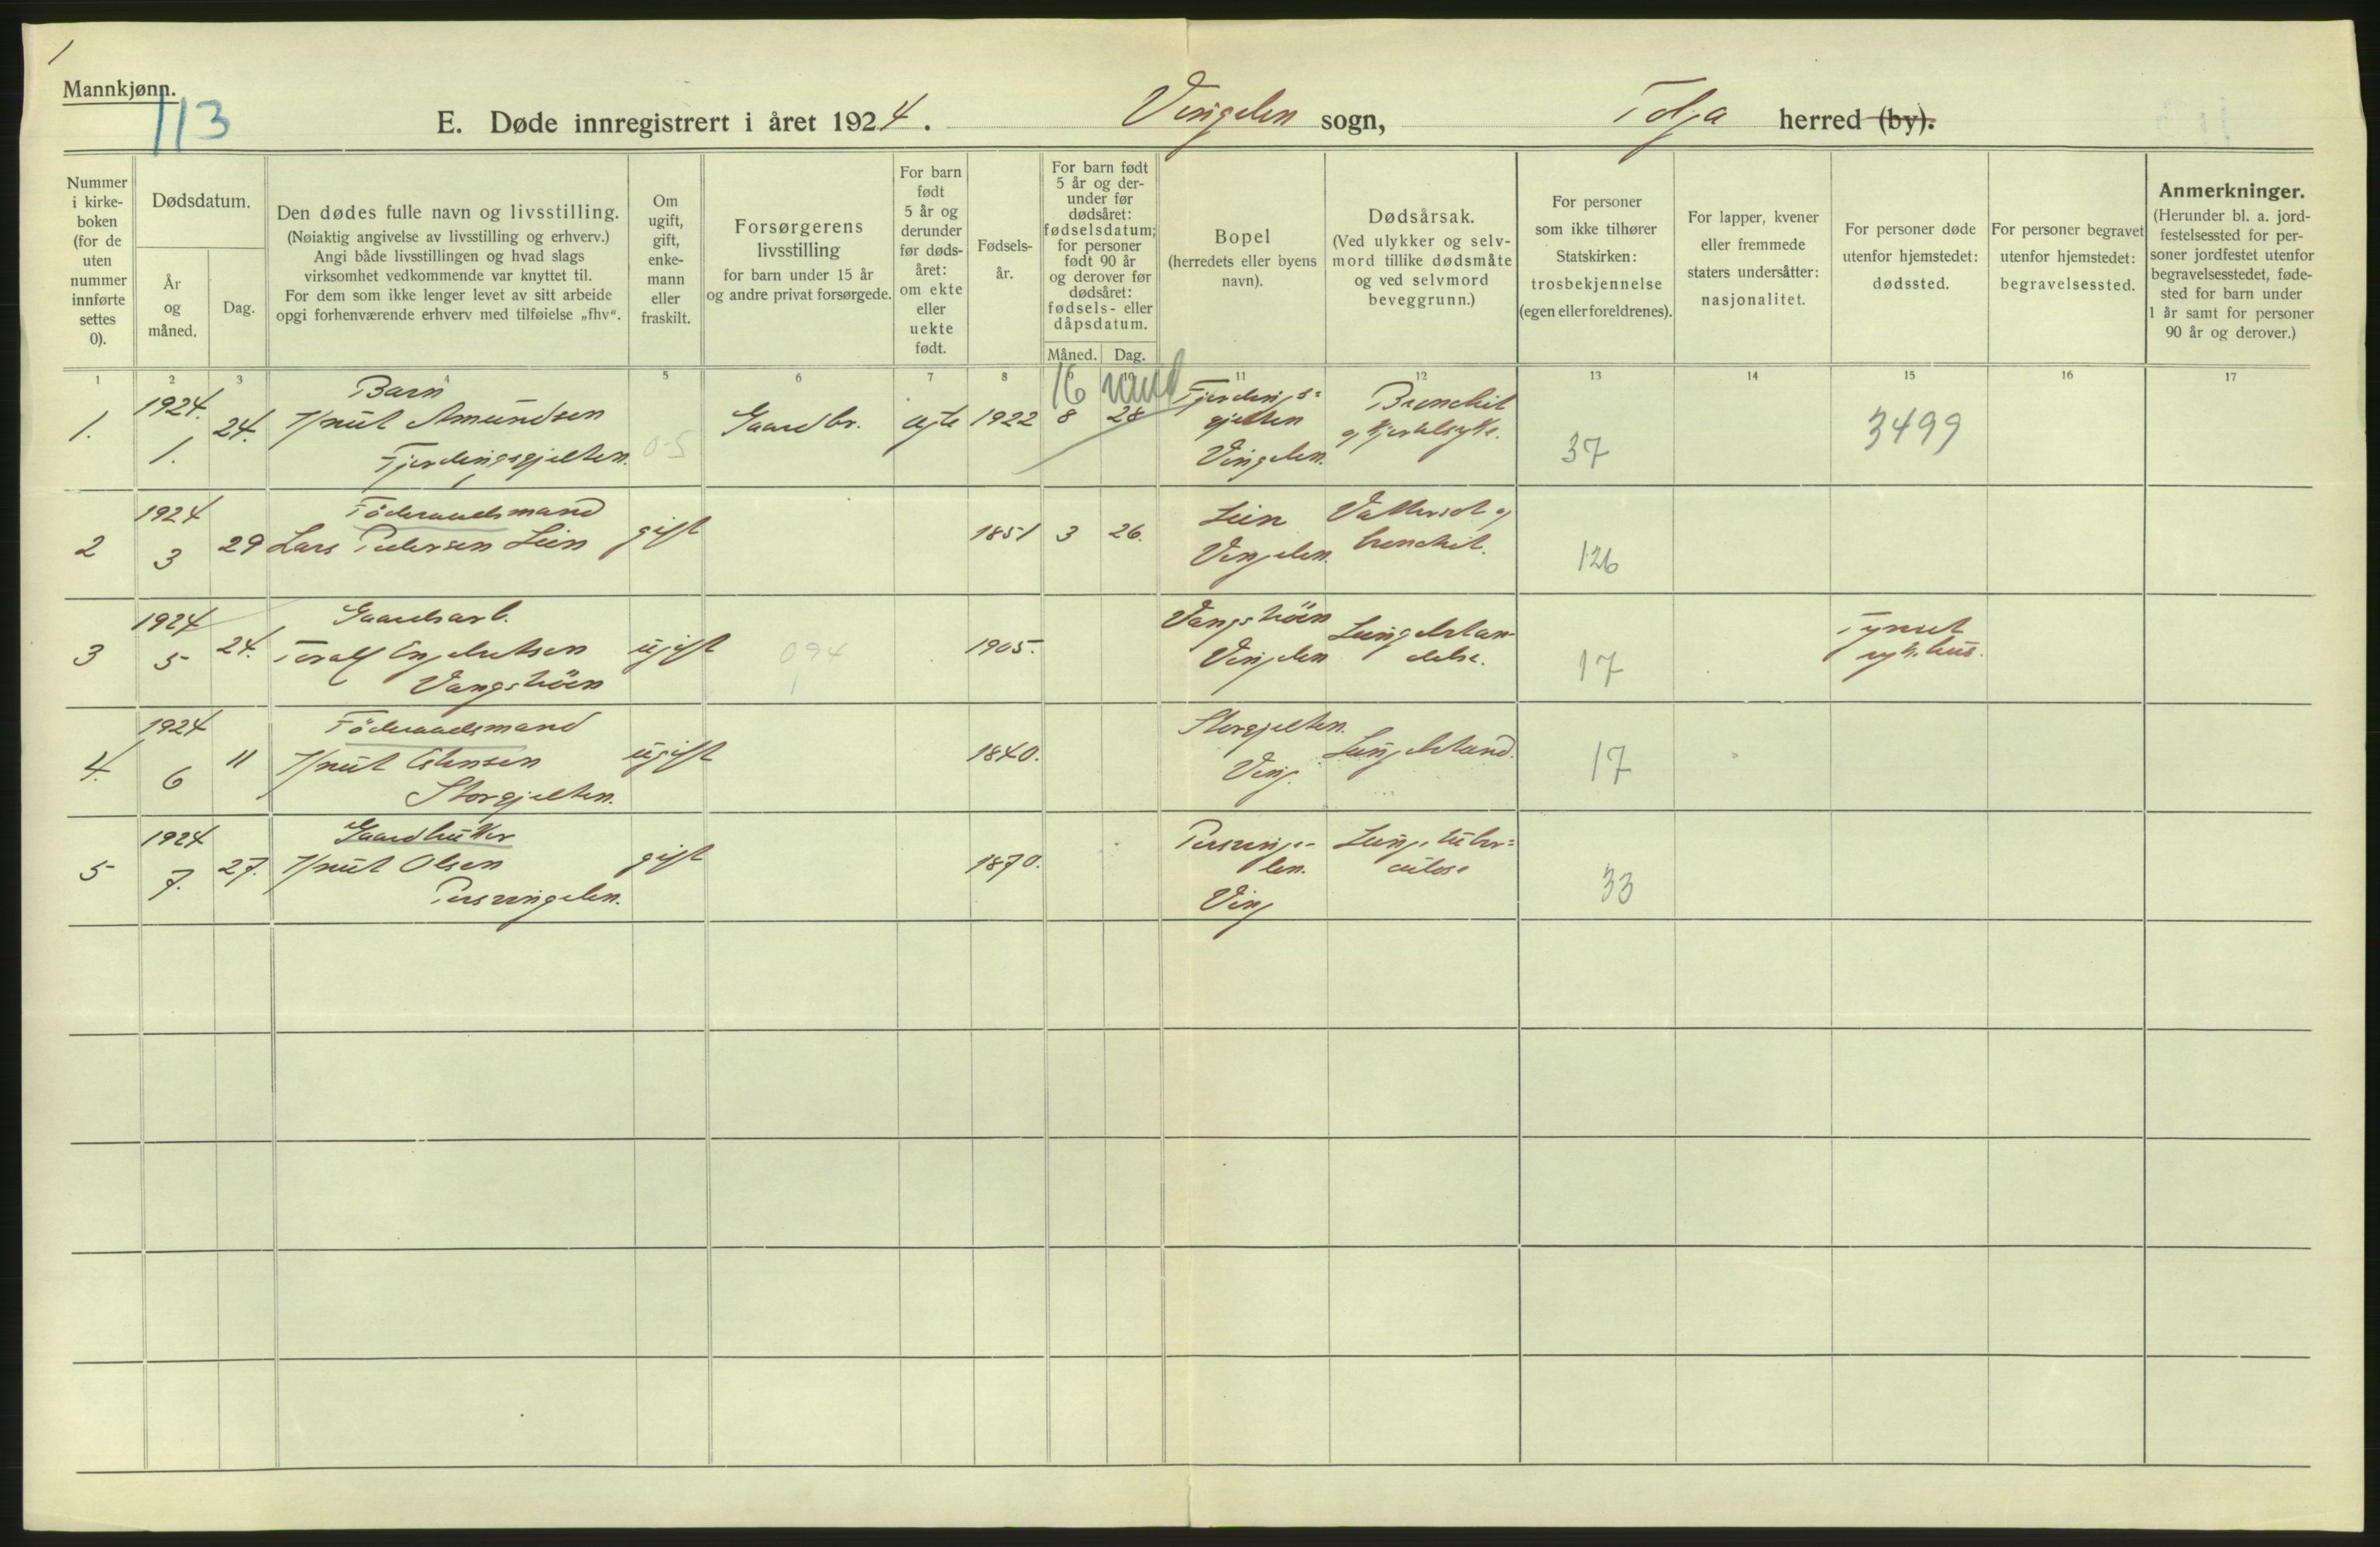 1
Mannkjønn.
113
E. Døde innregistrert i året 1924. Vingelen sogn, Tolga herred (by).
Nummer i kirke- boken (for de uten nummer innførte settes 0).
Dødsdatum.
År og måned.
Dag.
Den dødes fulle navn og livsstilling.
(Nøiaktig angivelse av livsstilling og erhverv.)
Angi både livsstillingen og hvad slags
virksomhet vedkommende var knyttet til.
For dem som ikke lenger levet av sitt arbeide
opgi forhenværende erhverv med tilføielse „fhv“.
Om ugift, gift, enke- mann eller fraskilt.
Forsørgerens
livsstilling
for barn under 15 år
og andre privat forsørgede.
For barn født 5 år og derunder før døds- året: om ekte eller uekte født.
Fødsels- år.
For barn født 5 år og der- under før dødsåret: fødselsdatum; for personer født 90 år og derover før dødsåret: fødsels- eller dåpsdatum.
Måned. Dag.
Bopel
(herredets eller byens
navn).
Dødsårsak.
(Ved ulykker og selv-
mord tillike dødsmåte
og ved selvmord
beveggrunn.)
For personer
som ikke tilhører
Statskirken:
trosbekjennelse
(egen eller foreldrenes).
For lapper, kvener
eller fremmede
staters undersåtter:
nasjonalitet.
For personer døde
utenfor hjemstedet:
dødssted.
For personer begravet
utenfor hjemstedet:
begravelsessted.
Anmerkninger.
(Herunder bl. a. jord-
festelsessted for per-
soner jordfestet utenfor
begravelsesstedet, føde-
sted for barn under
1 år samt for personer
90 år og derover.)
1 2 3 4 5 6 7 8 9 10 11 12 13 14 15 16 17
1. 1924. 1. 24.
Barn
Knut Amundsen
Fjerdingsgjelten.
0-5
Gaardbr. ægte 1922 8 28
16
Fjerdings-
gjelten
Vingelen.
Bronchit
og Hjertesyke.
37
3499
2 1924 3 29
Föderaadsmand
Lars Pedersen Lien
gift 1851 3 26.
Lien
Vingelen.
Vattersot og
bronchit.
126
3 1924 5 24.
Gaardsarb.
Toralf Engebretsen
Vangshöen
ugift 094 1905.
Vangshöen
Vingelen
Lungebetæn-
delse.
17
Tynset
sykehus.
4. 1924 6 11
Föderaadsmand
Knut Estensen
Storgjelten.
ugift 1840.
Storgjelten.
Ving.
Lungebetænd.
17
5 1924 7. 27.
Gaardbruker
Knut Olsen
Pusvingelen.
gift 1870.
Pusvinge-
len.
Ving
Lungetuber-
culose
33